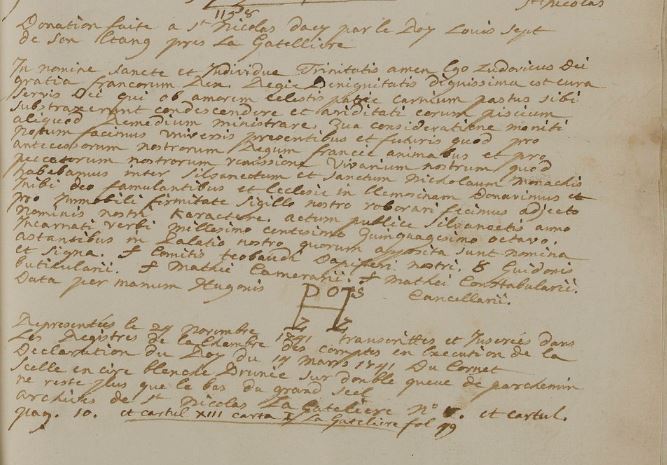 St Nicolas
1158
Donation faite a St Nicolas dacy par le Roy Louis Sept
de Son Etang pres La Gatelliere
In nomine Sancte et Individue Trinitatis amen Ego Ludovicus Dei
gratia francorum Rex. Regie Benignitatis dignissima est cura
Servis Dei qui ob amorem celestis patrie carnium pastus sibi
Substraxerunt condescendere et ariditati eorum piscium
aliquod remedium ministrare. Qua consideratione moniti
notum facimus universis presentibus et futuris quod pro
antecessorum nostrorum Regum francie animabus et pro
peccatorum nostrorum remissione Vivarium nostrum quod
habebamus inter Silvanectum et Sanctum Nicholaum Monachis
inibi deo famulantibus et Ecclesie in Elemosinam Donavimus et
pro immobili firmitate Sigillo nostro roborari fecimus adjecto
nominis nostri Karactere. actum publice Silvanectis anno
Incarnati verbi Millesimo centesimo Quinquagesimo octavo.
astantibus in Palatio nostro quorum apposita sunt nomina
et Signa. S Comitis teobaudi Dapiferi nostri. S Guidonis
butticularii. S Mathei Camerarii. S Mathei Constabularii.
Data per manum Hugonis Cancellarii.
Representées le 29 novembre 1741 transcrittes et Inserées dans
Les Registres de la Chambre des comptes en Execution de la
Declaration du Roy du 14 mars 1741 Du Cornet
Scelle en cire blanche Brunie Sur double queue de parchemin
ne reste plus que le bas du grand Seel
archives de St Nicolas La Gateliere no et cartul.
pag. 10. et cartul XIII carta La Gateliere fol 99